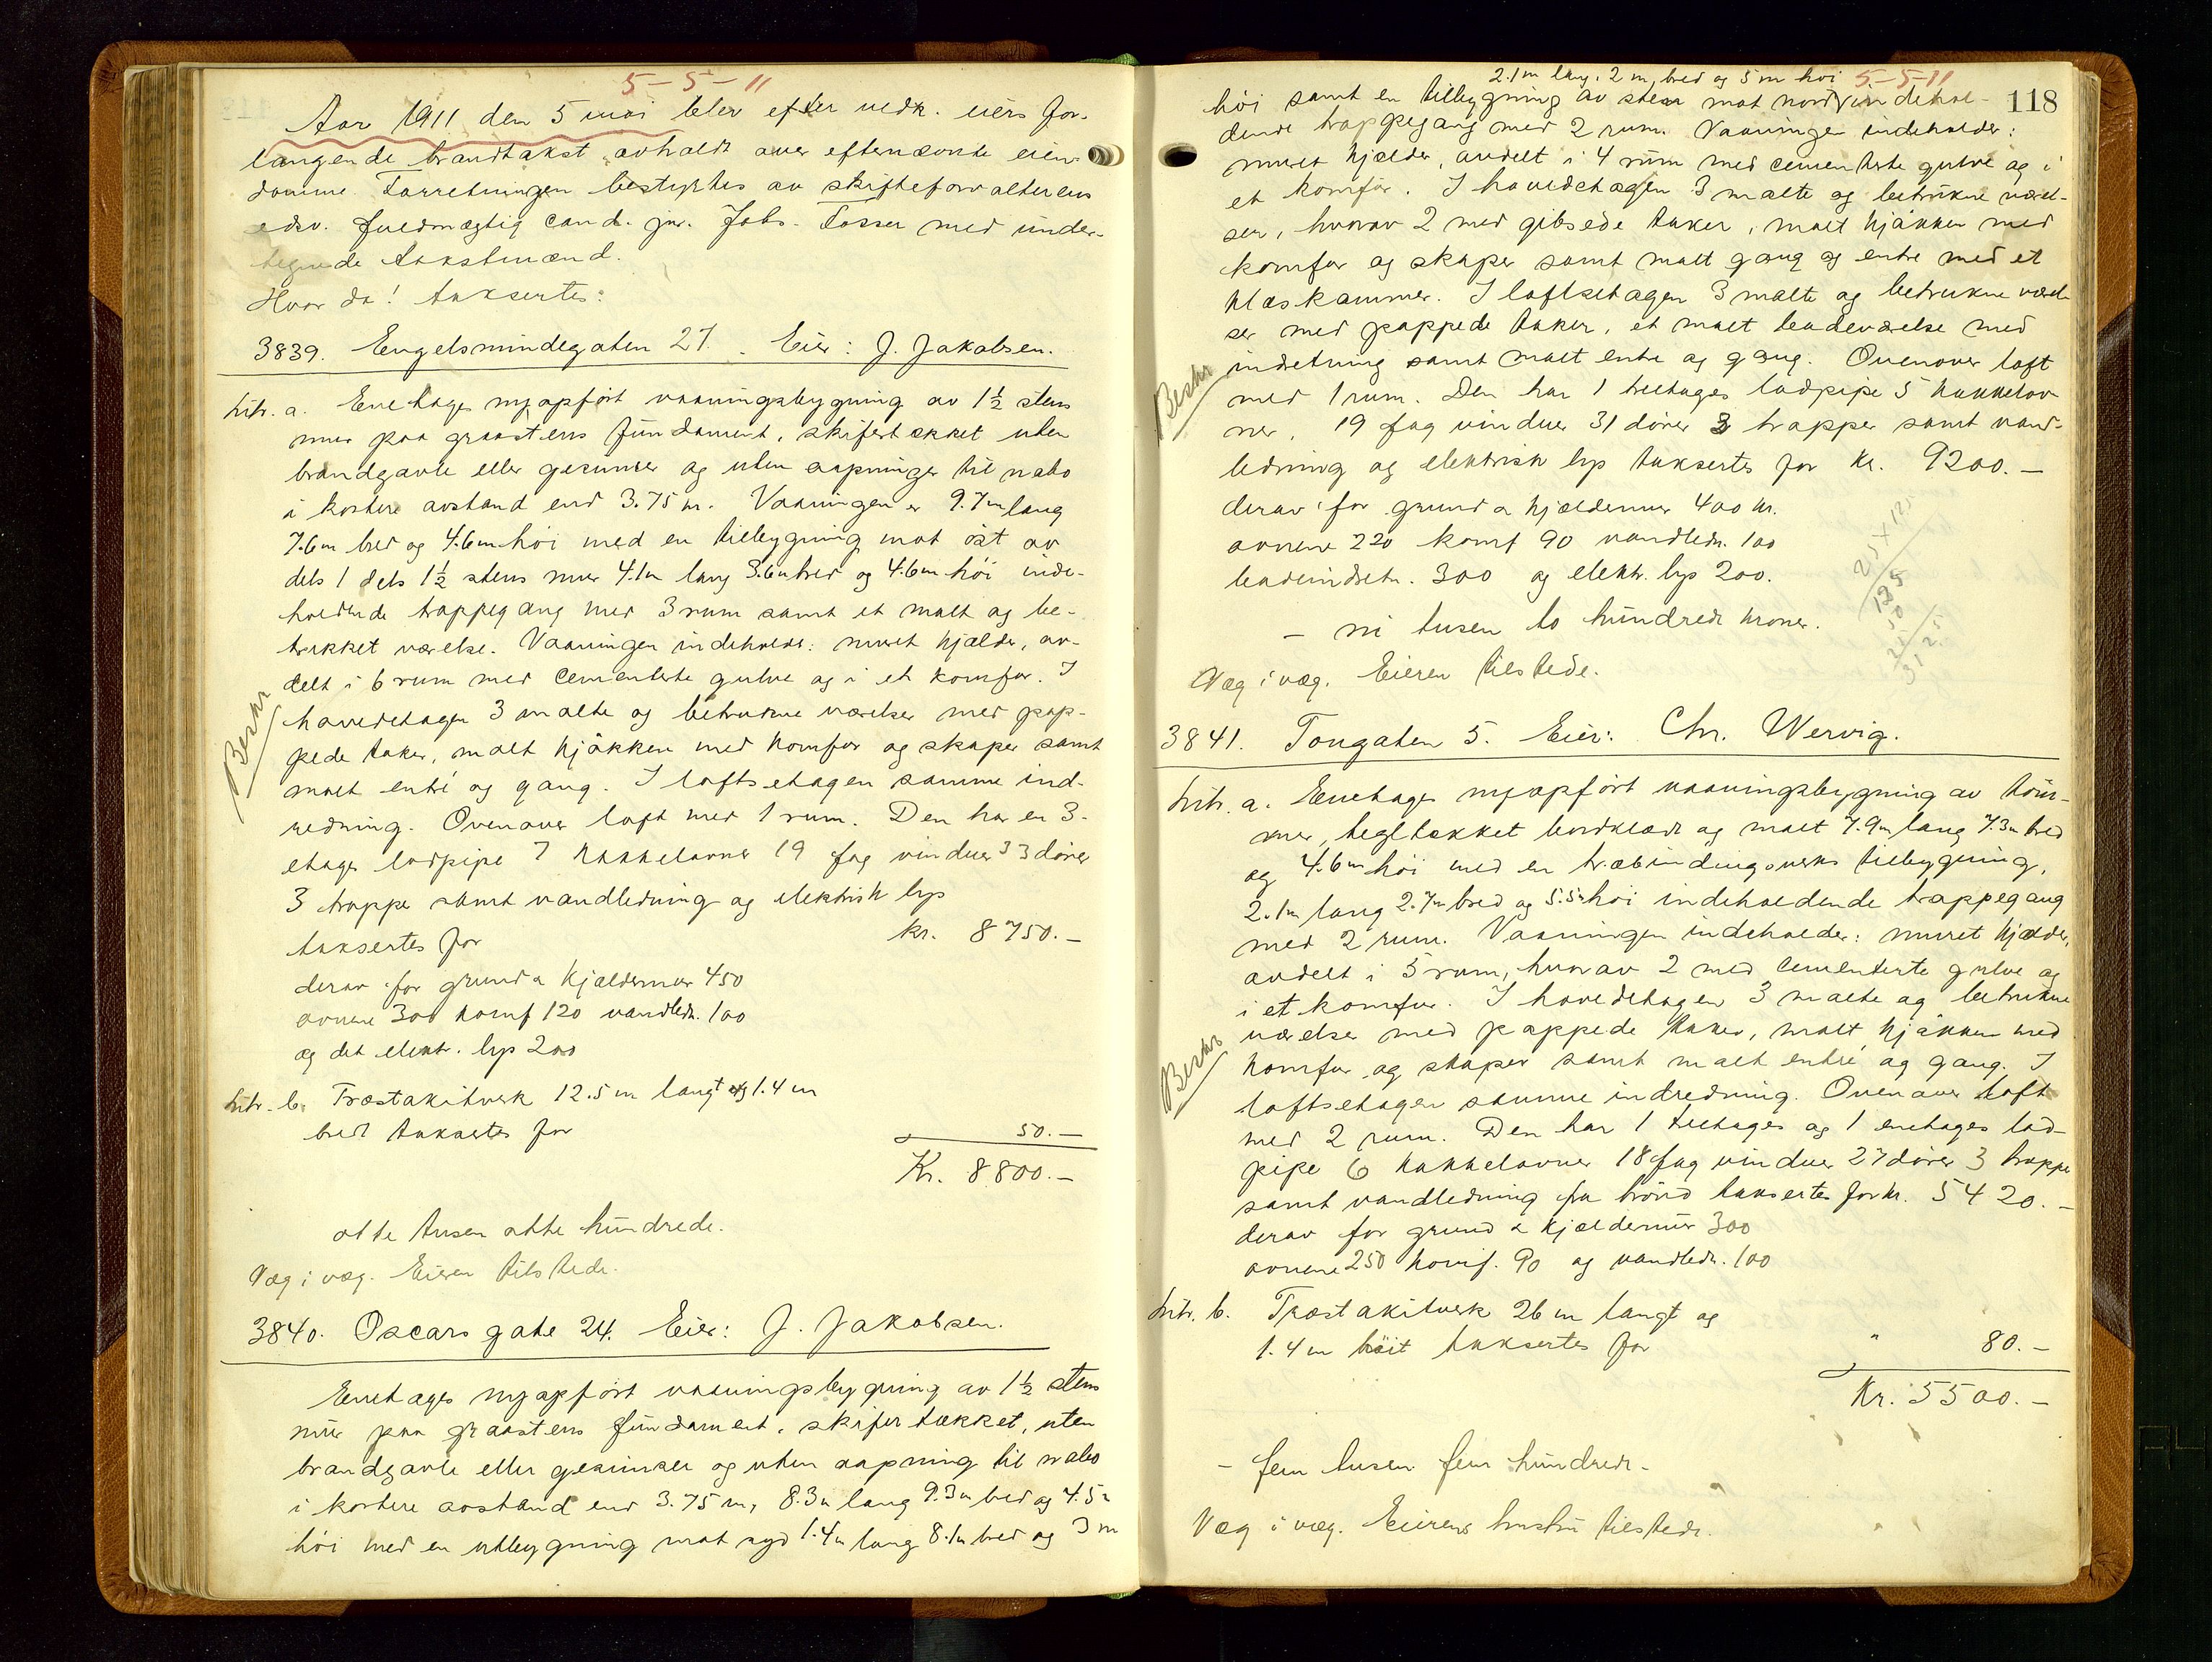 5-5-11
Aar 1911 den 5 mai blev efter vedk. eiers for-
langende brandtakst avholdt over efternævnte eien-
domme. Forretningen bestyrtes av skifteforvalterens
edsv. fuldmægtig cand. jur. Johs. Tosser med under-
tegnede takstmænd.
Hvor da! taksertes:
3839. Engelsmindegaten 27. Eier: J. Jakobsen.
Litr. a. Enetages nyopført vaaningsbygning av 1½ stens
mur paa graastens fundament, skifertækket uten
brandgavle eller gesimser og uten aapninger til nabo
i kortere avstand end 3.75 m. Vaaningen er 9.7m lang
7.6m bred og 4.6m høi med en tilbygning mot øst av
dels 1 dels 1½ stens mur 4.1m lang 3.6m bred og 4.6m høi inde-
holdende trappegang med 3 rum samt et malt og be-
trukket værelse. Vaaningen indeholder: muret kjælder, av-
delt i 6 rum med cementerte gulve og i et komfur. I
hovedetagen 3 malte og betrukne værelser med pap-
pede taker, malt kjøkken med komfur og skaper samt
malt entré og gang. I loftsetagen samme ind-
redning. Ovenover loft med 1 rum. Den har en 3-
etages lodpipe 7 kakkelovner 19 fag vinduer 33 dører
3 trapper samt vandledning og elektrisk lys
taksertes for kr. 8750.-
derav for grund & kjældermur 450
ovnene 300 komf 120 vandledn. 100
og det elektr. lys 200
Beskr
Litr. b. Træstakitverk 12.5 m langt og 1.4 m
bredt taksertes for 50.-
Kr. 8800.-
otte tusen otte hundrede.
Væg i væg. Eieren tilstede.
3840. Oscars gate 24. Eier: J. Jakobsen.
Enetages nyopført vaaningsbygning av 1½ stens
mur paa graastens fundament, skifertækket, uten
brandgavle eller gesimser og uten aapning til nabo
i kortere avstand end 3.75 m, 8.3m lang 9.3m bred og 4.5m
høi med en utbygning mot syd 1.4m lang 8.1m bred og 3 m
5-5-11
118
2.1m lang, 2 m bred og 5 m høi
høi samt en tilbygning av sten mot nord indehol-
dende trappegang med 2 rum. Vaaningen indeholder:
muret kjælder, avdelt i 4 rum med cementerte gulve og i
et komfur. I hovedetagen 3 malte og betrukne værel-
ser, hvorav 2 med gibsede taker, malt kjøkken med
komfur og skaper samt malt gang og entre med et
klæskammer. I loftsetagen 3 malte og betrukne værel-
ser med pappede taker, et malt badeværelse med
indretning samt malt entre og gang. Ovenover loft
med 1 rum. Den har 1 treetages lodpipe 5 kakkelov-
ner, 19 fag vinduer 31 dører 3 trapper samt vand-
ledning og elektrisk lys taksertes for kr. 9200.-
derav for grund & kjældermur 400 kr.
ovnene 220 komf 90 vandledn. 100
badeindretn. 300 og elektr. lys 200.
Beskr
25 x 125
125
50
25
31 25
- ni tusen to hundrede kroner.
Væg i væg. Eieren tilstede.
3841. Tougaten 5. Eier: Chr. Wervig.
Litr. a. Enetages nyopført vaaningsbygning av tøm-
mer, tegltækket bordklædt og malt 7.9m lang 7.3m bred
og 4.6m høi med en træbindingsverks tilbygning,
2.1m lang 2.7m bred og 5.5m høi indeholdende trappegang
med 2 rum. Vaaningen indeholder: muret kjælder,
avdelt i 5 rum, hvorav 2 med cementerte gulve og
i et komfur. I hovedetagen 3 malte og betrukne
værelser med pappede taker, malt kjøkken med
komfur og skaper samt malt entré og gang. I
loftsetagen samme indredning. Ovenover loft
med 2 rum. Den har 1 treetages og 1 enetages lod-
pipe 6 kakkelovner 18 fag vinduer 27 dører 3 trapper
samt vandledning fra brønd taksertes for kr. 5420.-
derav for grund & kjældermur 300
ovnene 250 komf. 90 og vandledn. 100
Beskr
Litr. b. Træstakitverk 26 m langt og
1.4 m høit taksertes for " 80.-
Kr. 5500.-
- fem tusen fem hundrede -
Væg i væg. Eierens hustru tilstede.